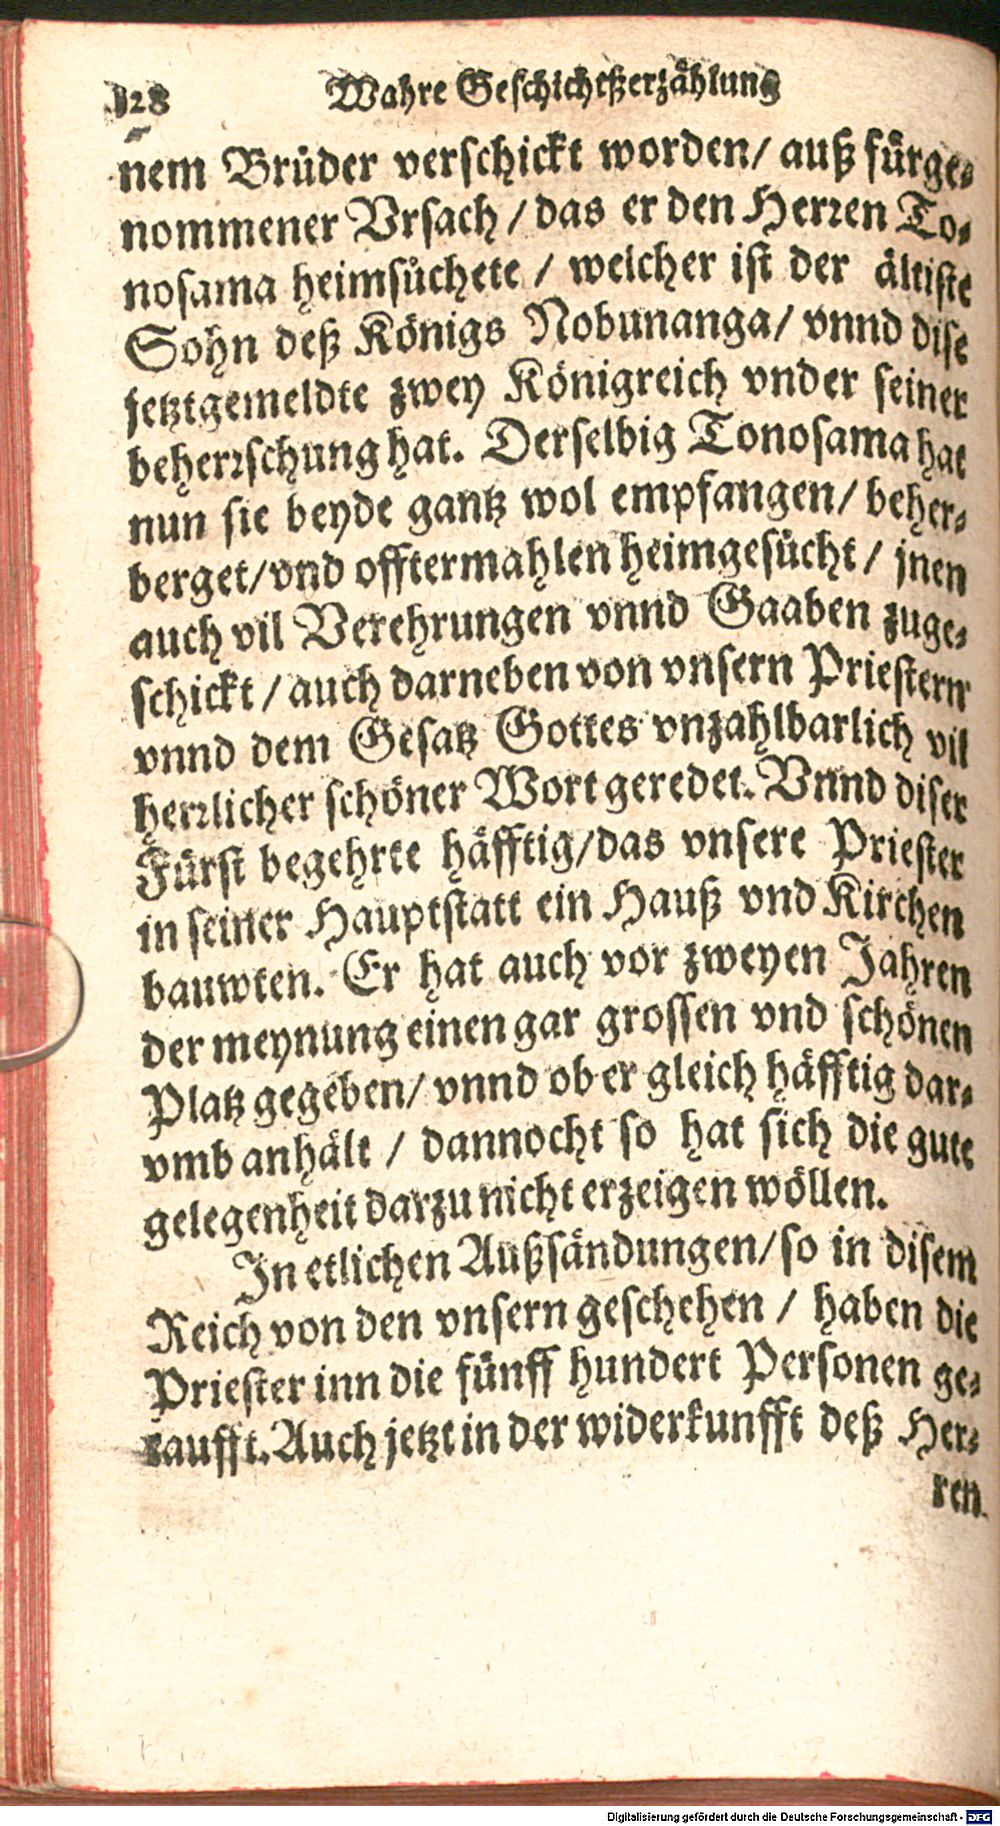 128 Wahre Geschichtßerzählung
nem Brůder verschickt worden/ auß fürge-
nommener Vrsach / das er den Herren To-
nosama heimsůchete / welcher ist der ältiste
Sohn deß Königs Nobunanga/ vnnd dise
jetztgemeldte zwey Königreich vnder seiner
beherrschung hat. Derselbig Tonosama hat
nun sie beyde gantz wol empfangen/ beher-
berget/vnd offtermahlen heimgesůcht / jnen
auch vil Verehrungen vnnd Gaaben zuge-
schickt / auch darneben von vnsern Priestern
vnnd dem Gesatz Gottes vnzahlbarlich vil
herrlicher schöner Wort geredet. Vnnd diser
Fürst begehrte häfftig/das vnsere Priester
in seiner Hauptstatt ein Hauß vnd Kirchen
bauwten. Er hat auch vor zweyen Jahren
der meynung einen gar grossen vnd schönen
Platz gegeben/ vnnd ob er gleich häfftig dar-
vmb anhält / dannocht so hat sich die gute
gelegenheit darzu nicht erzeigen wöllen.
In etlichen Außsändungen/so in disem
Reich von den vnsern geschehen / haben die
Priester inn die fünff hundert Personen ge-
taufft. Auch jetzt in der widerkunfft deß Her-
ren
Digitalisierung gefördert durch die Deutsche Forschungsgemeinschaft - DFG